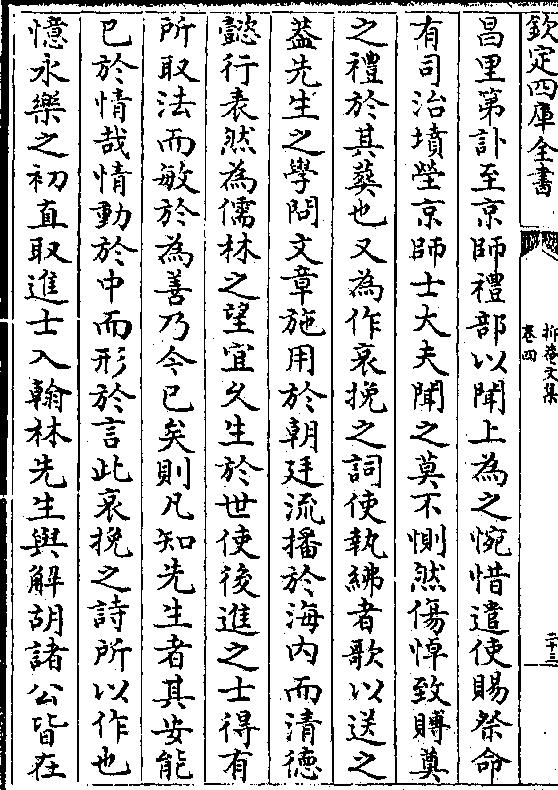 欽定四庫全書
抑菴文集
卷四
二十三
昌里第訃至京師禮部以聞上為之惋惜遣使賜祭命
有司治墳塋京師士大夫聞之莫不惻然傷悼致賻奠
之禮於其葬也又為作哀挽之詞使執紼者歌以送之
葢先生之學問文章施用於朝廷流播於海内而清德
懿行表然為儒林之望宜乆生於世使後進之士得有
所取法而敏於為善乃今已矣則凡知先生者其安能
已於情哉情動於中而形於言此哀挽之詩所以作也
憶永樂之初直取進士入翰林先生與解胡諸公皆在